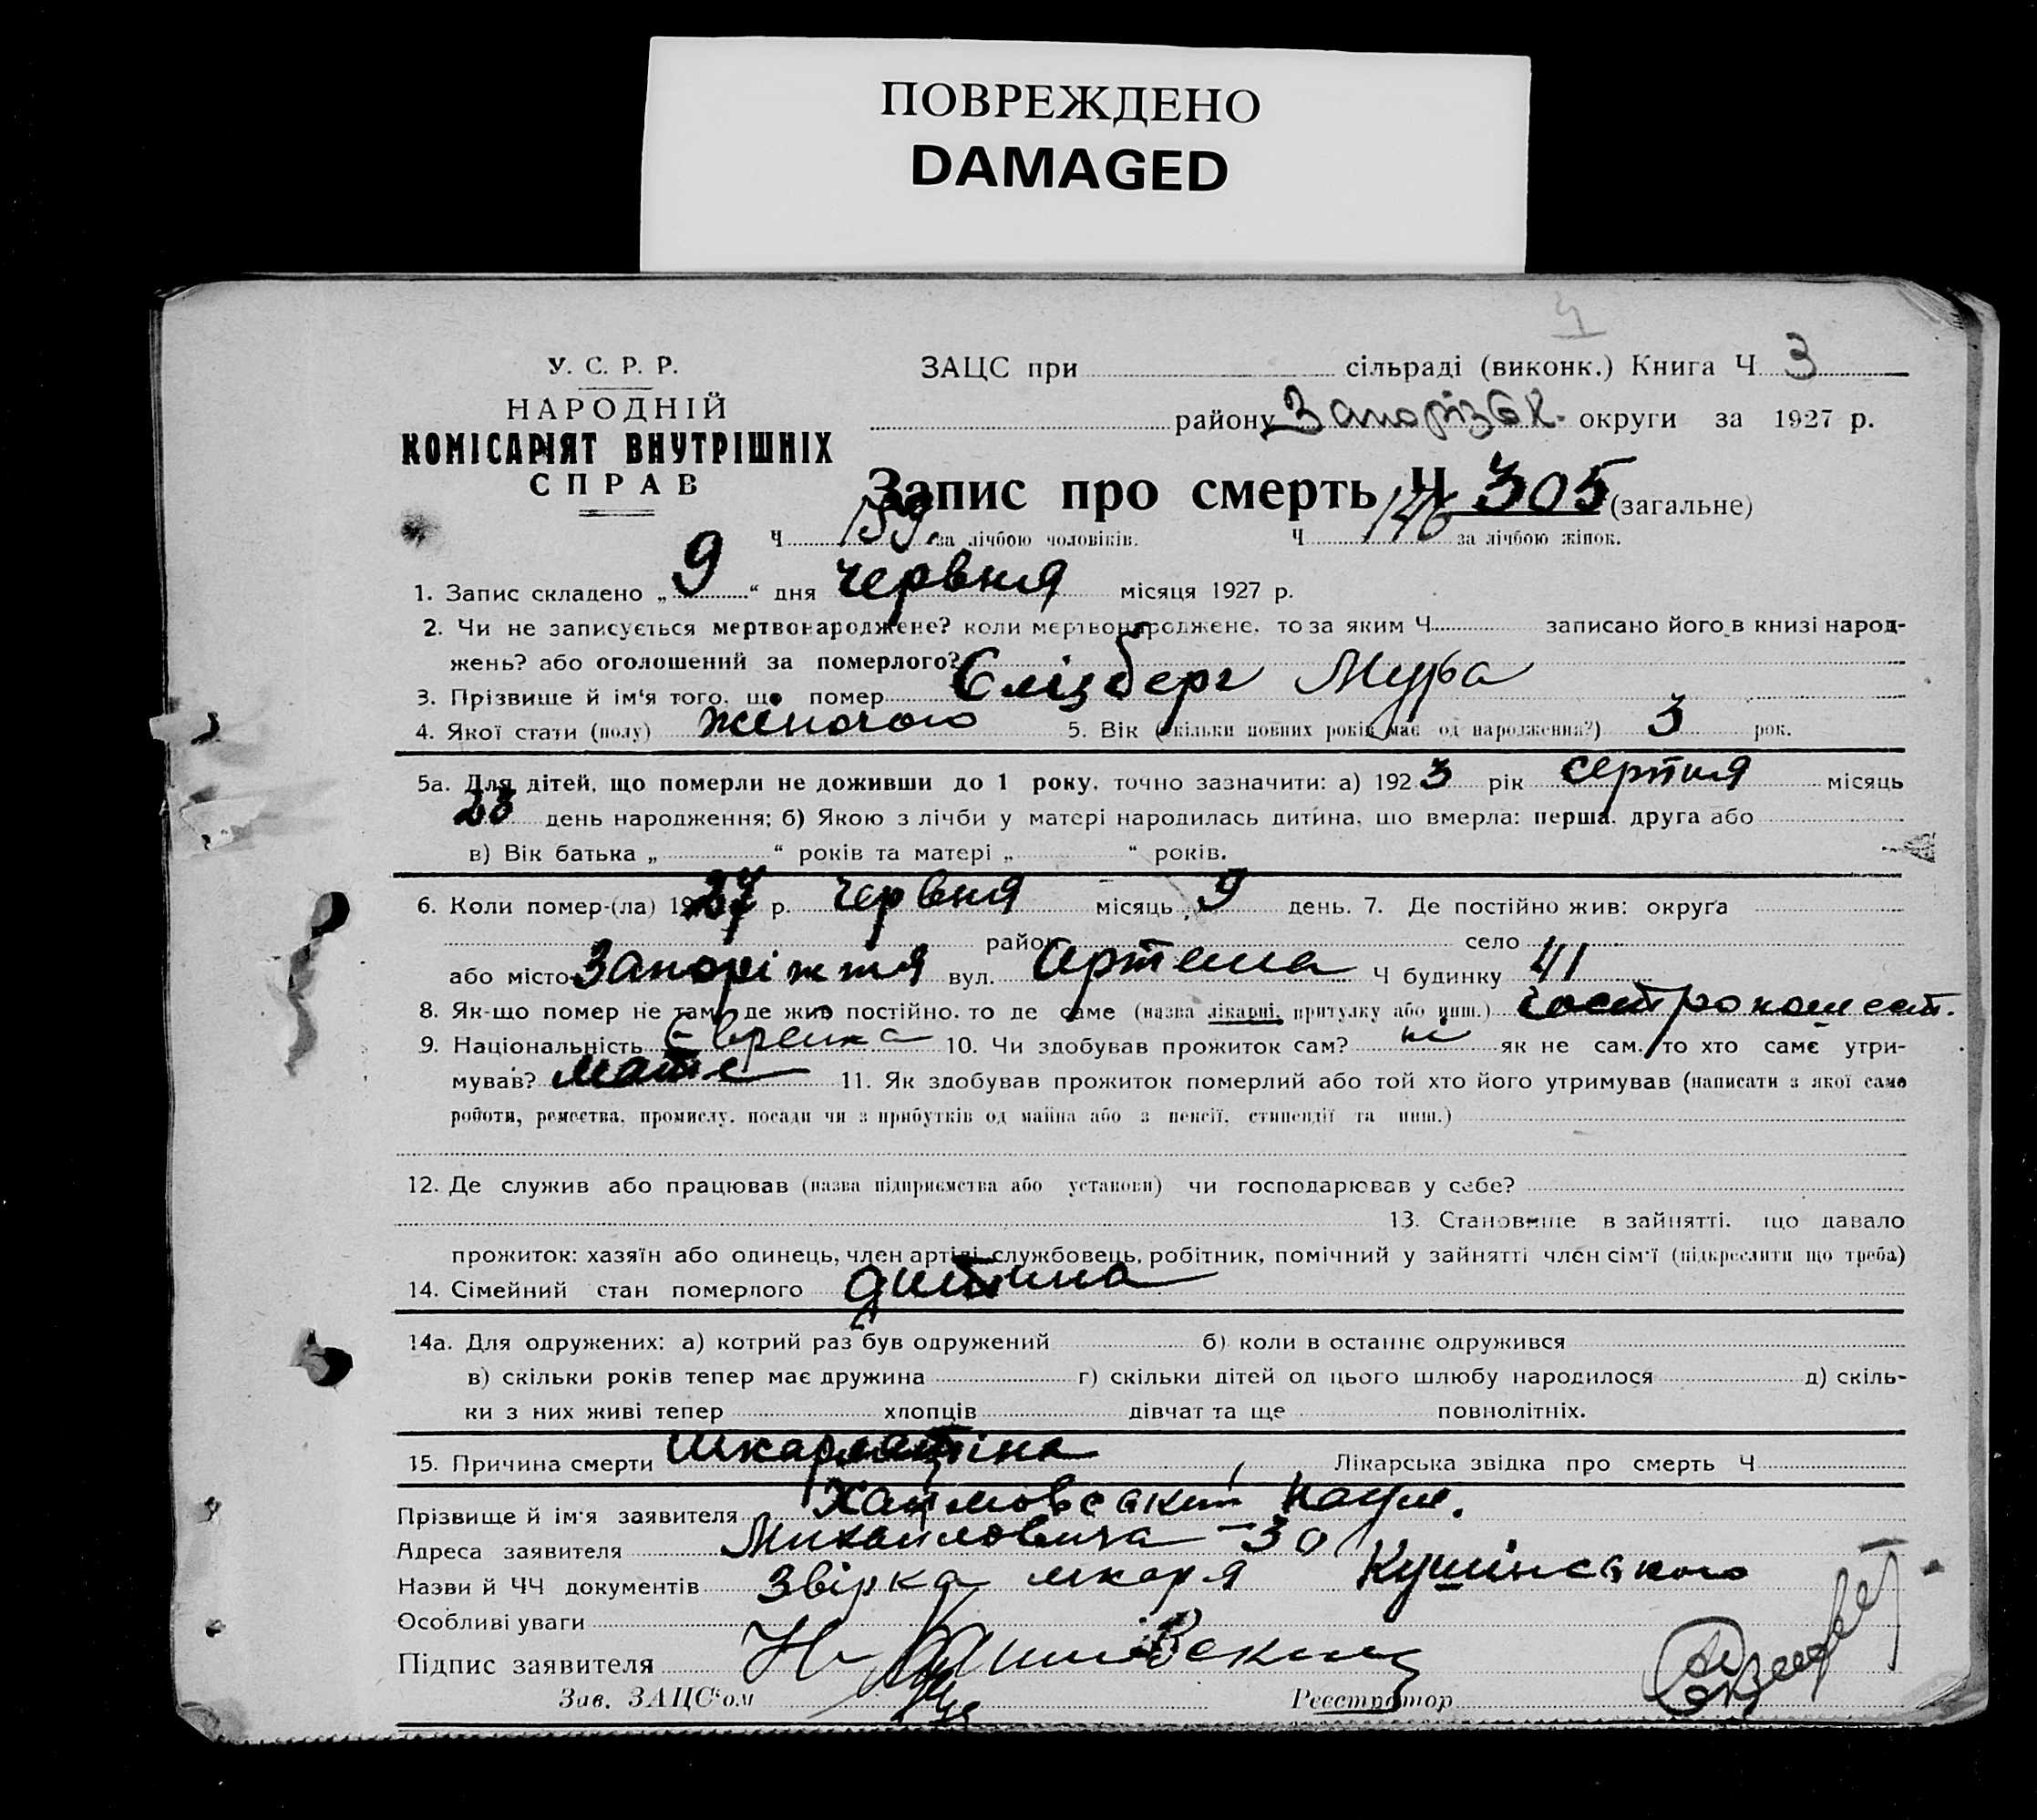 ПОВРЕЖДЕНО
DAMAGED
4
У. С. Р. Р.
НАРОДНІЙ
КОМІСАРІЯТ ВНУТРІШНІХ
СПРАВ
ЗАЦС при сільраді (виконк.) Книга Ч 3
району Запорізьк. округи за 1927 р.
Запис про смерть Ч 305 (загальне)
Ч 159 за лічбою чоловіків. Ч 146 за лічбою жінок.
1. Запис складено „ 9 “ дня червня місяця 1927 р.
2. Чи не записується мертвонароджене? коли мертвонароджене, то за яким Ч записано його в книзі народ-
жень? або оголошений за померлого?
3. Прізвище й ім‘я того, що помер Єлізберг Мура
4. Якої стати (полу) жіночого 5. Вік (скільки повних років має од народження?) 3 рок.
5а. Для дітей, що померли не доживши до 1 року, точно зазначити: а) 1923 рік серпня місяць
23 день народження; б) Якою з лічби у матері народилась дитина, що вмерла: перша, друга або
в) Вік батька „ “ років та матері „ “ років.
6. Коли помер-(ла) 1927 р. червня місяць 9 день. 7. Де постійно жив: округа
район село
або місто Запоріжжя вул. Артема Ч будинку 41
8. Як-що помер не там, де жив постійно, то де саме (назва лікарні, притулку або инш.)
9. Національність Єврейка 10. Чи здобував прожиток сам? ні як не сам, то хто саме утри-
мував? мати 11. Як здобував прожиток померлий або той хто його утримував (написати з якої саме
роботи, ремества, промислу, посади чи з прибутків од майна або з пенсії, стипендії та инш.)
12. Де служив або працював (назва підприємства або установи) чи господарював у себе?
13. Становище в зайнятті, що давало
прожиток: хазяїн або одинець, член артілі, службовець, робітник, помічний у зайнятті член сім‘ї (підкреслити що треба)
14. Сімейний стан померлого дитина
14а. Для одружених: а) котрий раз був одружений б) коли в останнє одружився
в) скільки років тепер має дружина г) скільки дітей од цього шлюбу народилося д) скіль-
ки з них живі тепер хлопців дівчат та ще повнолітніх.
15. Причина смерти Шкарлатіна Лікарська звідка про смерть Ч
Прізвище й ім‘я заявителя Хаймовський Наум.
Адреса заявителя Михайловича - 30
Назви й ЧЧ документів Звірка лікаря Кушінського
Особливі уваги
Підпис заявителя
Зав. ЗАЦС‘ом Реєстратор